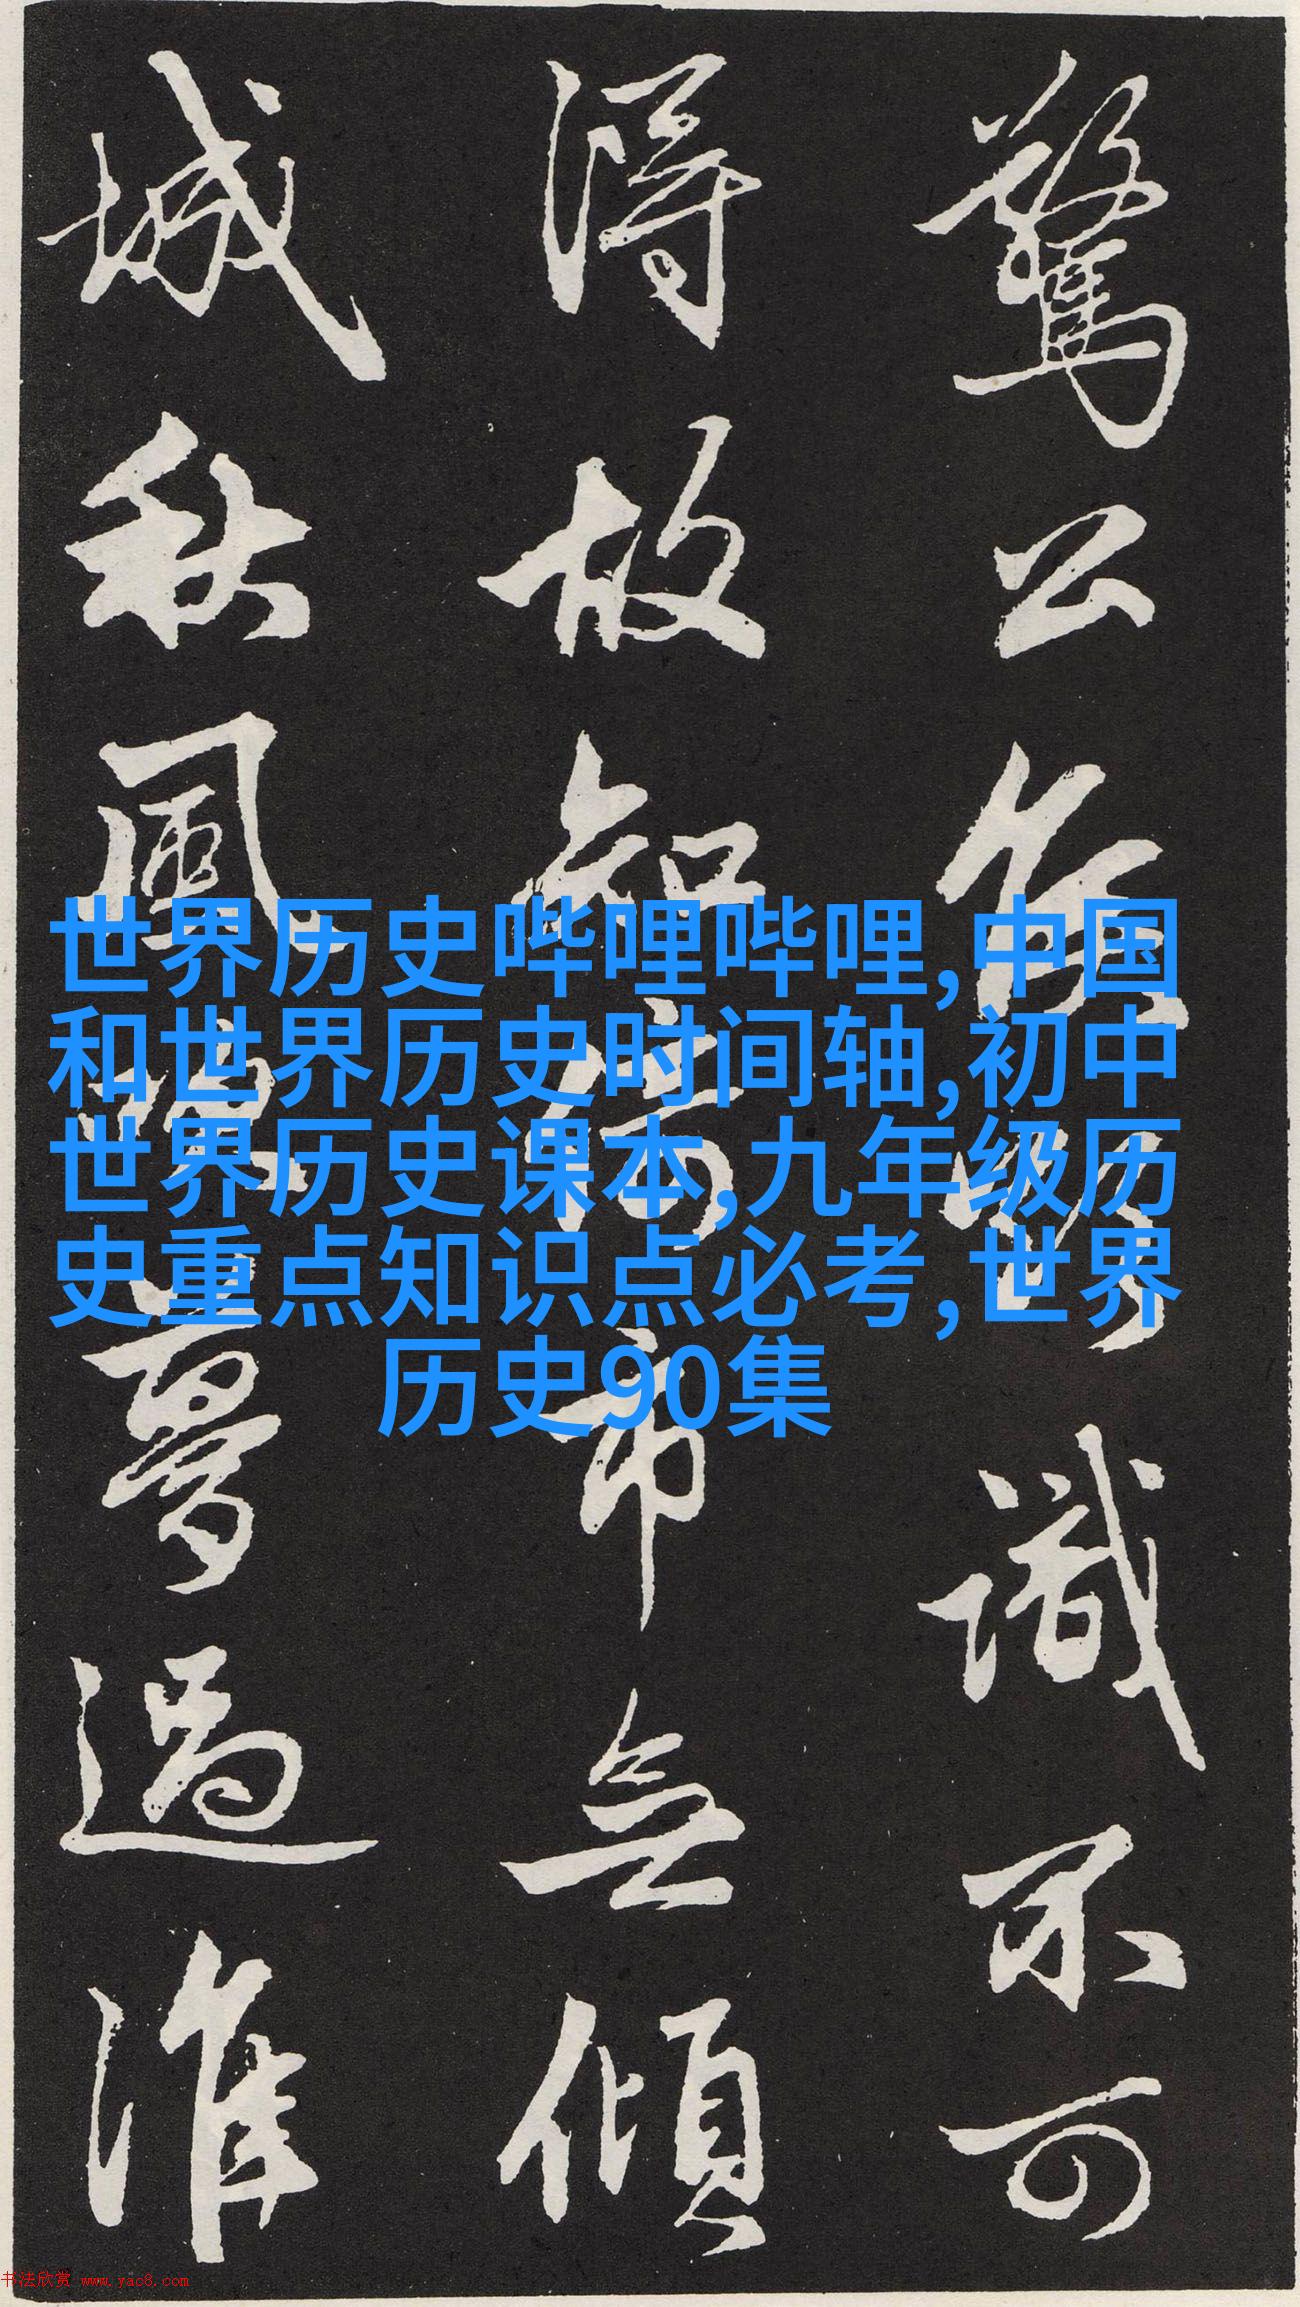 驚公詹聊識不可
得故知何市無傾
城秋風魂夢過淮
世界历史哔哩哔哩,中国
和世界历史时间轴,初中
世界历史课本,九年级历
史重点知识点必考,世界
历史90集
书法欣赏 www.yac8.com